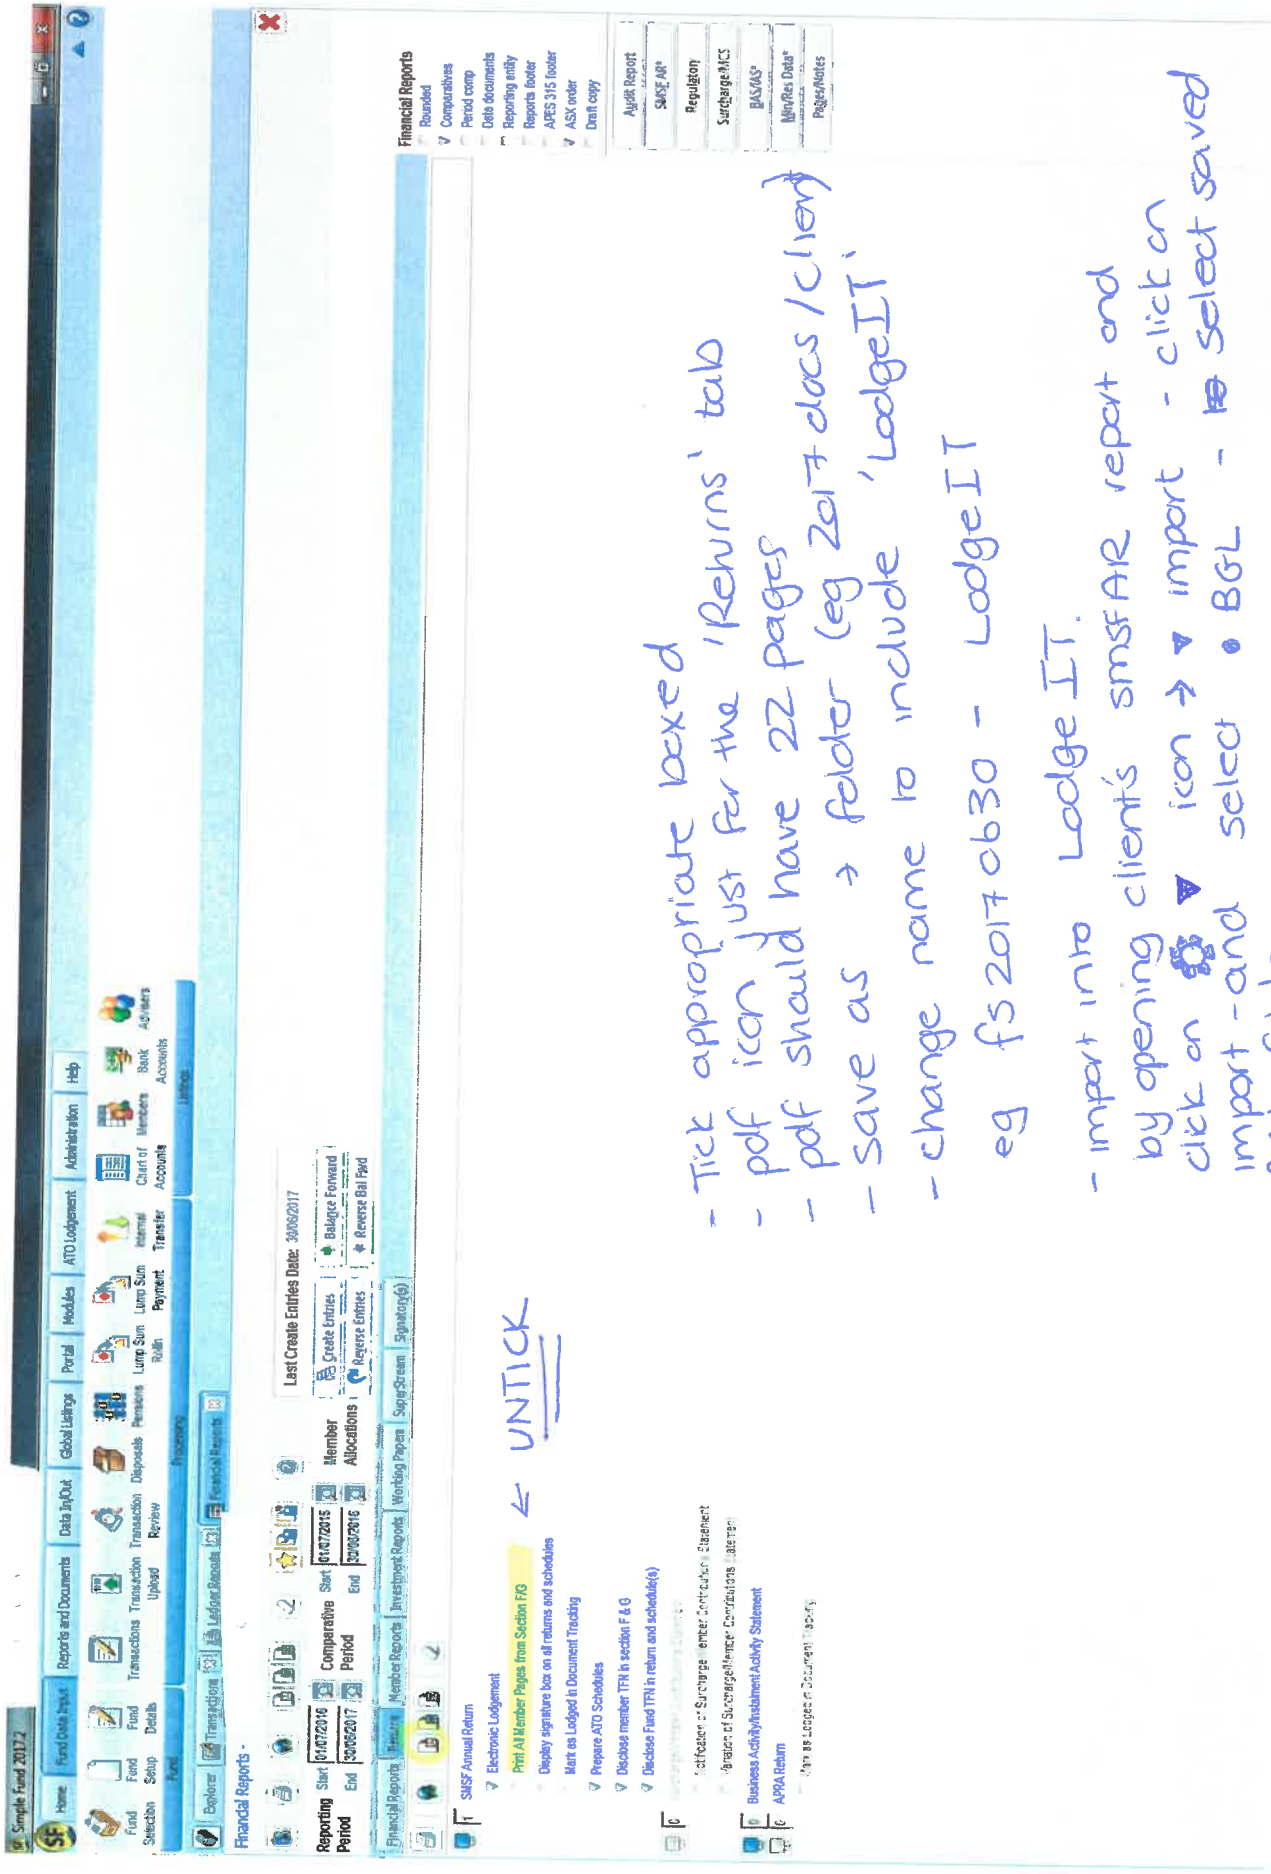 Simple Fund 2017.2
Home
Fund Data Input
Reports and Documents
Data In/Out
Global Listings
Portal
Modules
ATO Lodgement
Administration
Help
Fund Selection
Fund Setup
Fund Details
Transactions
Transaction Upload
Transaction Review
Disposals
Pensions
Lump Sum
Lump Sum Payment
Internal Transfer
Chart of Accounts
Members
Bank Accounts
Advisers
Fund
Processing
Listings
Explorer
Transactions
Ledger Reports
Financial Reports
Financial Reports -
Reporting Period
Start 01/07/2016
End 30/06/2017
Comparative Period
Start 01/07/2015
End 30/06/2016
Member Allocations
Last Create Entries Date: 30/06/2017
Create Entries
Balance Forward
Reverse Entries
Reverse Bal Fwd
Financial Reports
Returns
Member Reports
Investment Reports
Working Papers
SuperStream
Signatory(s)
1 SMSF Annual Return
Electronic Lodgement
Print All Member Pages from Section F/G
← UNTICK
Display signature box on all returns and schedules
Mark as Lodged in Document Tracking
Prepare ATO Schedules
Disclose member TFN in section F & G
Disclose Fund TFN in return and schedule(s)
0
Notification of Surcharge Member Contributions Statement
Variation of Surcharge/Member Contributions Statement
0 Business Activity/Instalment Activity Statement
0 APRA Return
Mark as Lodged in Document Tracking
Financial Reports
Rounded
Comparatives
Period comp
Date documents
Reporting entity
Reports footer
APES 315 footer
ASX order
Draft copy
Audit Report
SMSF AR*
Regulatory
Surcharge/MCS
BAS/IAS*
Min/Res Data*
Pages/Notes
- Tick appropriate boxed
- pdf icon just for the 'Returns' tab
- pdf should have 22 pages
- save as → folder (eg 2017 docs/client)
- change name to include 'LodgeIT'
eg fs20170630 - LodgeIT
- import into LodgeIT.
by opening client's SMSFAR report and
click on icon → ▼ import - click on
import - and select • BGL - select saved